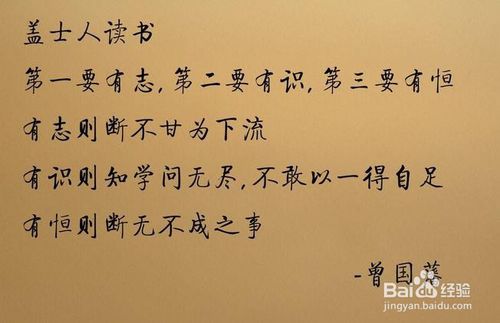 盖士人读书
第一要有志,第二要有识,第三要有恒
有志则断不甘为下流
有识则知学问无尽,不敢以一得自足
有恒则断无不成之事
-曾国藩
Baidu经验
jingyan.baidu.com